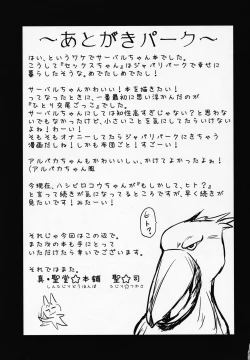 ～あとがきパーク～
はい、というワケでサーバルちゃん本でした。
こうして『セックスちゃん』はジャパリパークで幸せに
暮らしたそうな。めでたしめでたし！
サーバルちゃんかわいい！本を描きたい！
ってなったときに、一番最初に思い浮かんだのが
『ひとり交尾ごっこ』でした。
サーバルちゃんにしては知性高すぎじゃない？と思わな
いでもなかったけど、小さいことを気にしたらいけない
よね！わーい！
そもそもオナニーしてたらジャパリパークにきちゃう
漫画だしね！しかも布団ごと！すごーい！
アルパカちゃんもかわいいしぃ、かけてよかったよぉ！
（アルパカちゃん風
今現在、ハシビロコウちゃんが『もしかして、ヒト？』
って言う続きが気になってるところですが、今回はこの辺
で！みたいなー！
それじゃ今回はこの辺で。
また次の本も手にとって
いただけたら幸いでございます。
それではまた。
真・聖堂☆本舗　聖☆司
ヒト？